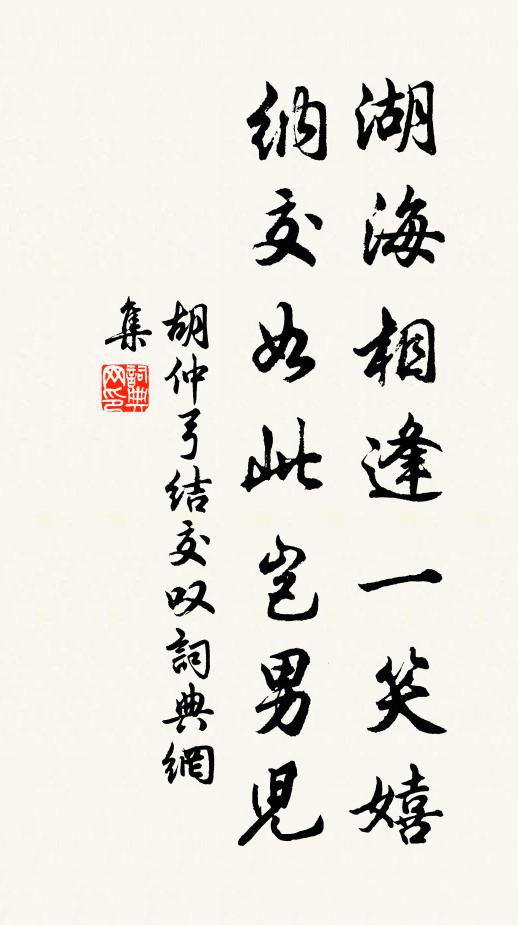 湖海相逢一笑嬉
納交如此豈男兒
胡仲弓結交叹詞典網
集
詞典
网印